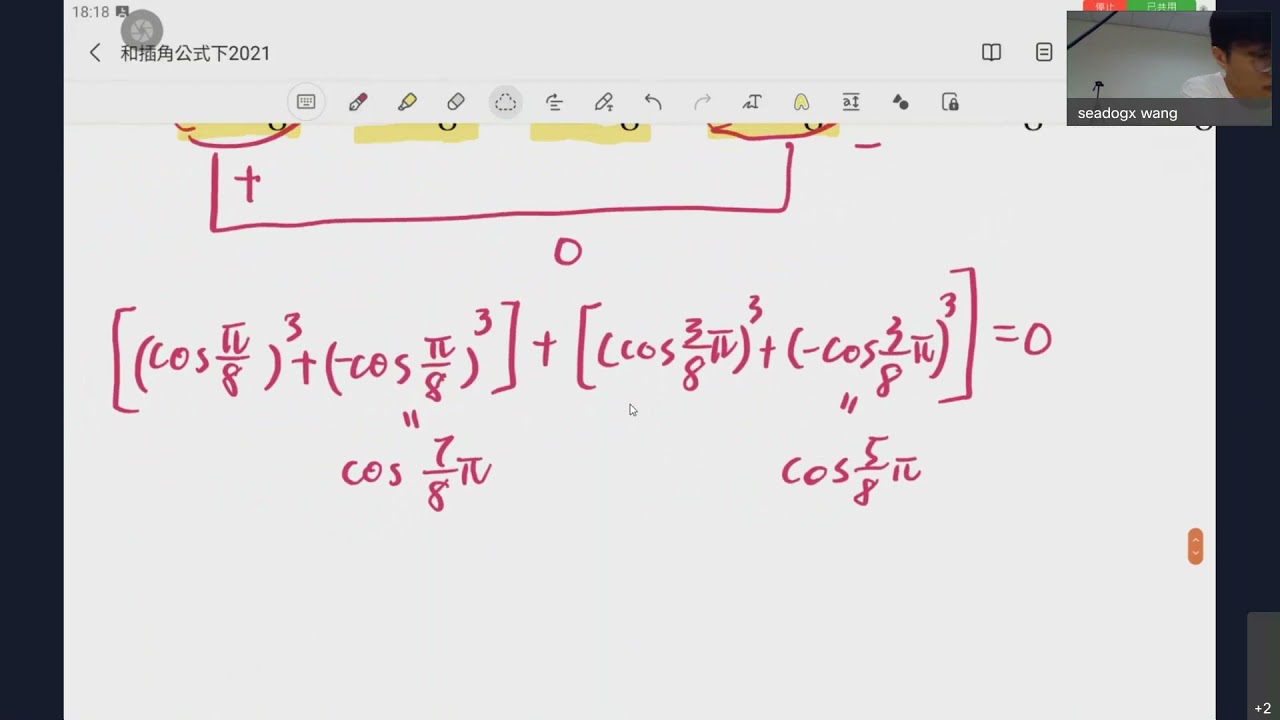 18:18
停止 已共用
和插角公式下2021
seadogx wang
+ −
0
[(cos π/8)³+(-cos π/8)³] + [(cos 3/8 π)³+(-cos 3/8 π)³] = 0
" "
cos 7/8 π cos 5/8 π
+2